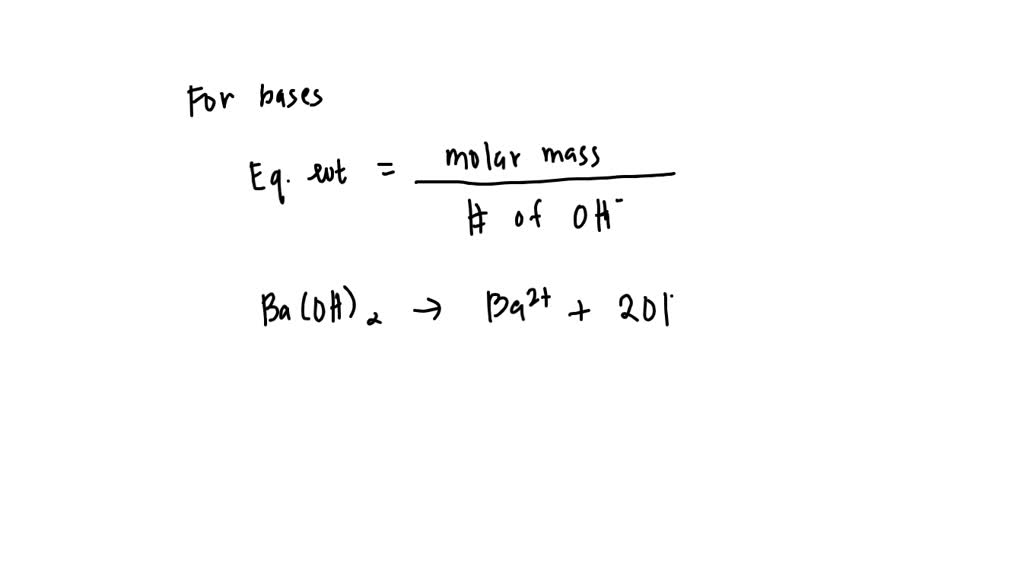 For bases
Eq. wt = molar mass
# of OH⁻
Ba(OH)₂ → Ba²⁺ + 2O